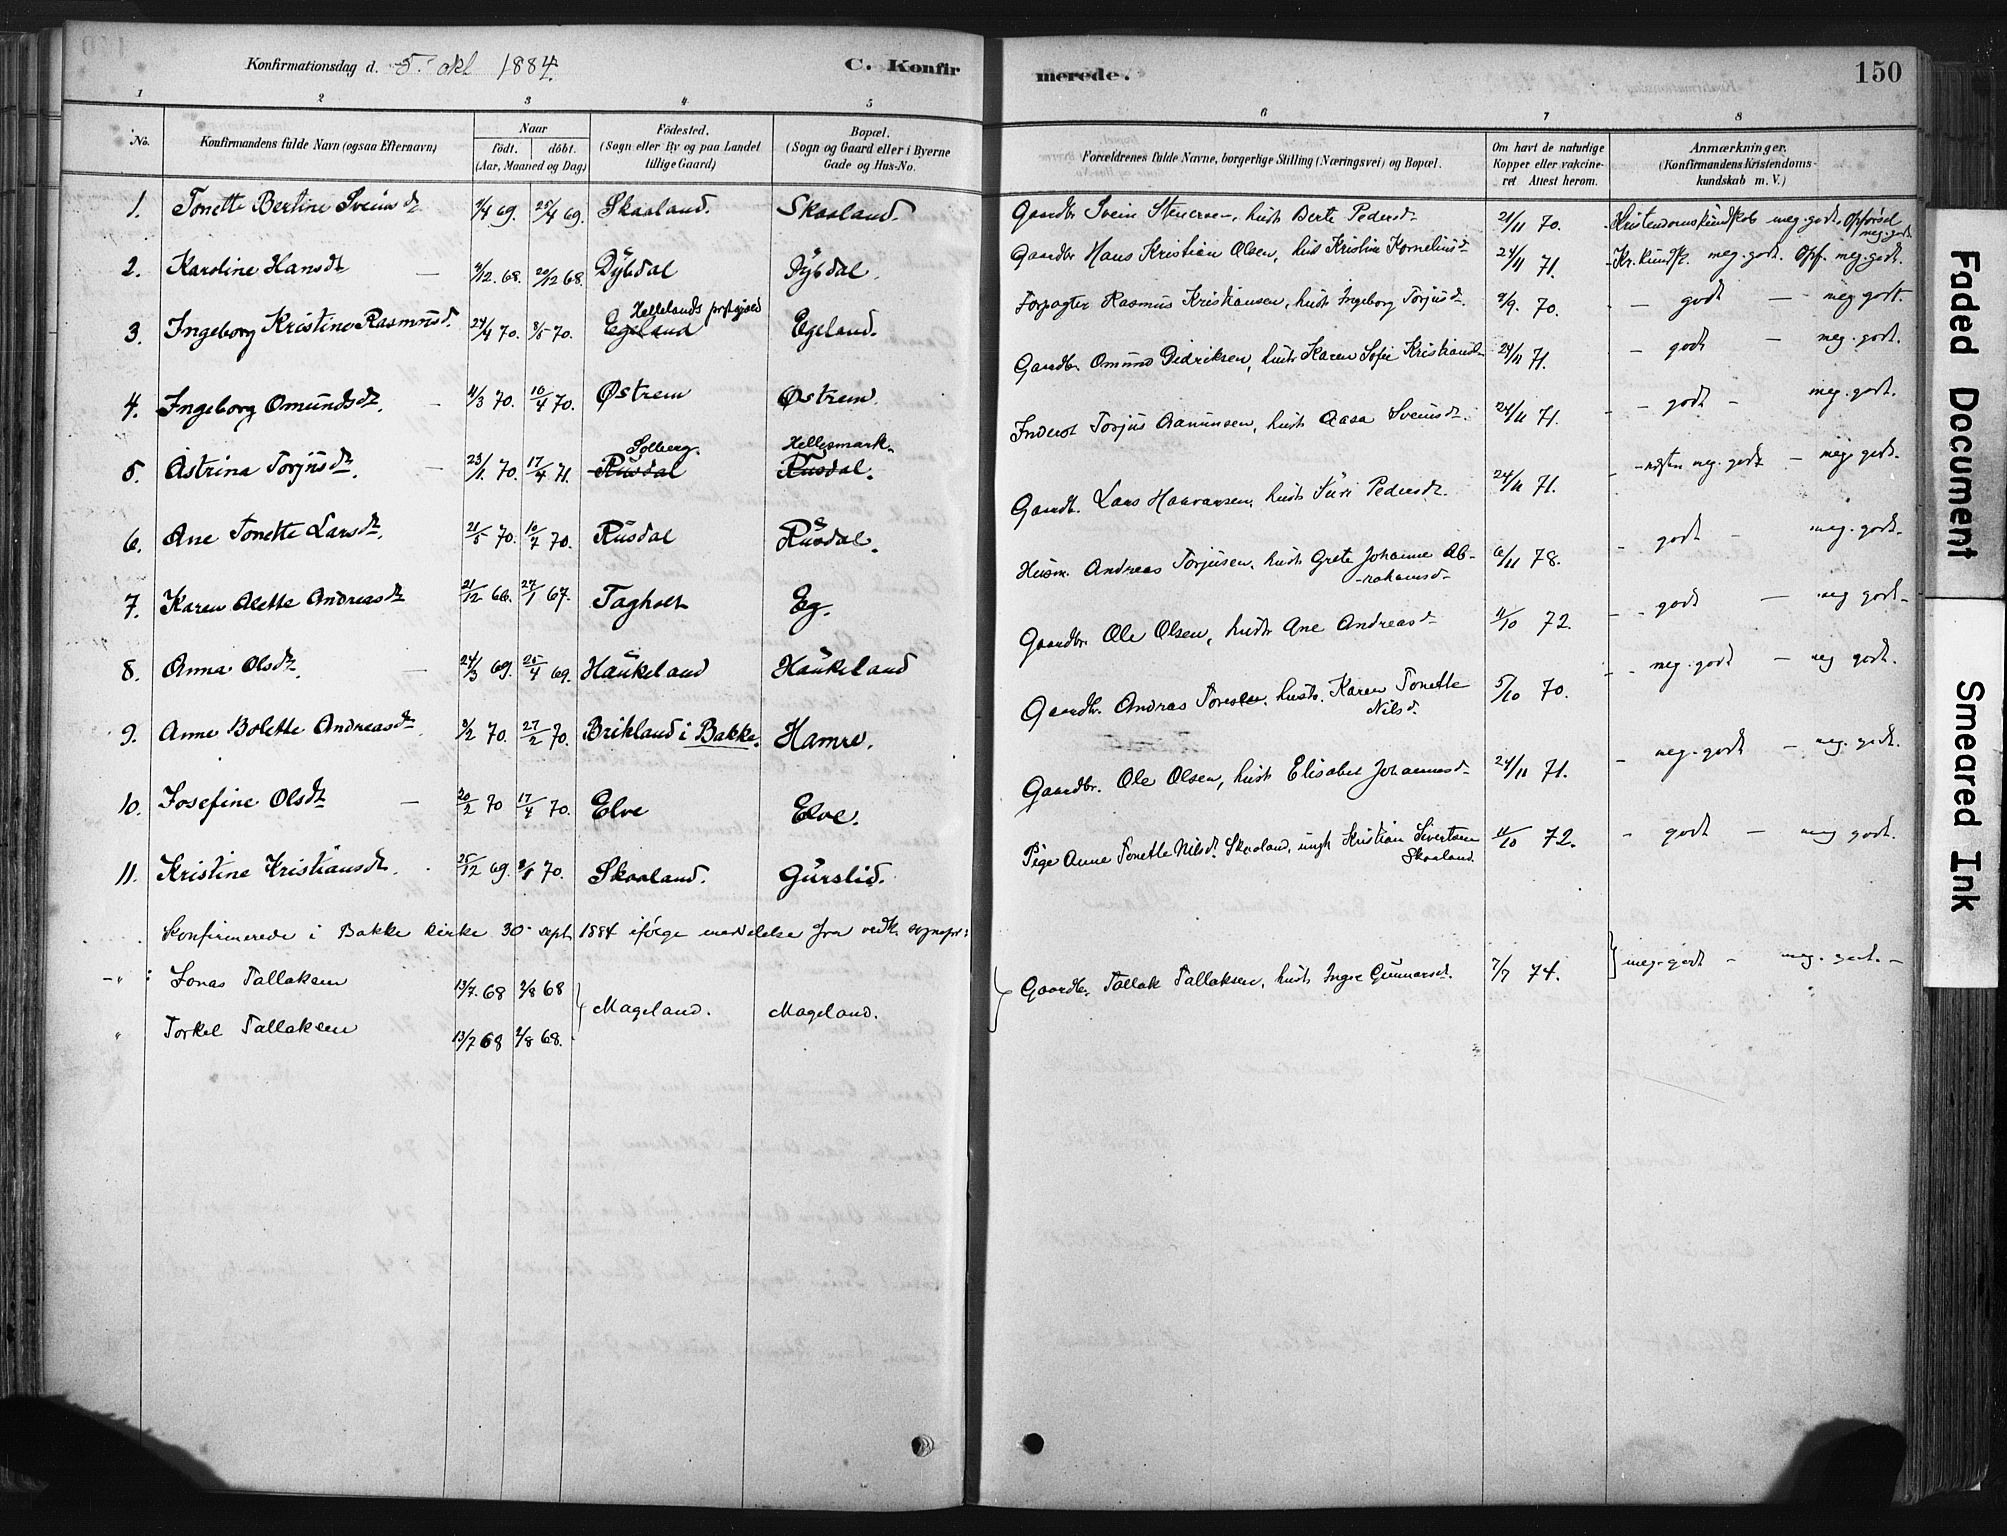 Konfirmationsdag d. 5. okt 1884.
C. Konfirmerede.
150
1 2 3 4 5 6 7 8
No.
Konfirmandens fulde Navn (ogsaa Efternavn)
Naar
født. døbt.
(Aar, Maaned og Dag)
Fødested.
(Sogn eller By og paa Landet
tillige Gaard)
Bopæl.
(Sogn og Gaard eller i Byerne
Gade og Hus-No.
Forældrenes fulde Navne, borgerlige Stilling (Næringsvei) og Bopæl.
Om havt de naturlige
Kopper eller vakcine-
ret Attest herom.
Anmærkninger.
(Konfirmandens Kristendoms-
kundskab m. V.)
1. Tonette Bertine Sveinsdt 69. 25/4 69. Skaaland. Skaaland. Gaardbr Svein Steiersen, hust Berte Pedersdt 21/11 70. Kristendomskundskab meg. godt. Opførsel meg. godt.
2. Karoline Hansdt — 9/12. 68. 20/12 68. Dybdal Dybdal. Gaardbr Hans Kristian Olsen, hust Kristine Korneliusdt 24/11 71. Kr. kundsk. meg. godt. Opf. meg. godt.
3. Ingeborg Kristine Rasmusd. 24/4 70. 8/5 70. Egeland Hellelands prstgjeld Egeland. Forpagter Rasmus Kristiansen, hust Ingeborg Torjusdt. 9/9. 70. — godt — meg godt.
4. Ingeborg Omundsdt. — 11/3 70. 10/4 70. Østrem Østrem. Gaardbr. Omund Didriksen, hust Karen Sofie Kristiansdt 24/11 71. — godt — meg. godt.
5. Astrina Torjusdt. — 23/1 70. 17/4 71. Rusdal Solberg. Rusdal. Hellesmark. Inderst Torjus Aanunsen, hust Aasa Sveinsdt. 24/11 71. — godt — meg. godt.
6. Ane Tonette Larsdt. 21/5 70. 10/7 70. Rusdal Rusdal. Gaardb. Lars Haavarsen, hust Siri Pedersdt. 24/11 71. — næsten meg. godt — meg. godt.
7. Karen Alette Andreasdt 21/12 66. 27/1 67. Tagholt Eg. Husm. Andreas Torjusen, hust Grete Johanne Ab-
-rahamsdt 6/11 78. — godt — meg. godt.
8. Anna Olsdt. — 24/3 69. 25/4 69. Haukeland Haukeland Gaardbr Ole Olsen, hust Ane Andreasdt 11/10 72. — godt — meg godt.
9. Anne Bolette Andreasdt 70. 27/2 70. Brikland i Bakke. Hamre. Gaardb. Andras Toresen. hust. Karen Tonette
Nilsd. 5/10 70. — meg. godt — meg godt.
10. Josefine Olsdt — 20/2 70 17/4 70. Elve Elve. Gaardbr. Ole Olsen, hust Elisabet Johannesdt 24/11 71. — meg. godt — meg. godt.
11. Kristine Kristiansdt. 25/12 69. 70. Skaaland. Gurslid. Pige Anne Tonette Nilsdt. Skaaland, ungk Kristian Sivertsen
Skaaland. 11/10 72. — godt — meg godt.
Konfirmerede i Bakke kirke 30 sept 1884 ifølge meddelelse fra vedk. sognepr:
— " : Jonas Tallaksen 13/7. 68 2/8 68 } Mageland. Mageland. { Gaardbr, Tallak Tallaksen, hust Inger Gunnarsdt. 7/7 74. } meg. godt — meg. godt. —
" Torkel Tallaksen 13/7 68 2/8 68.
Faded Document
Smeared Ink